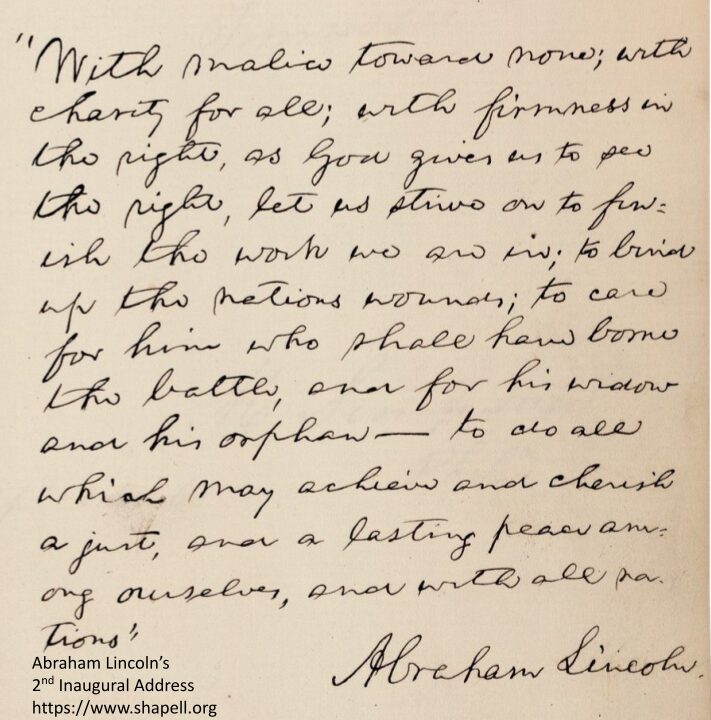 "With malice toward none; with
charity for all; with firmness in
the right, as God gives us to see
the right, let us strive on to fin=
ish the work we are in; to bind
up the nations wounds; to care
for him who shall have borne
the battle, and for his widow
and his orphan — to do all
which may achieve and cherish
a just, and a lasting peace am=
ong ourselves, and with all na-
tions"
Abraham Lincoln.
Abraham Lincoln's
2nd Inaugural Address
https://www.shapell.org